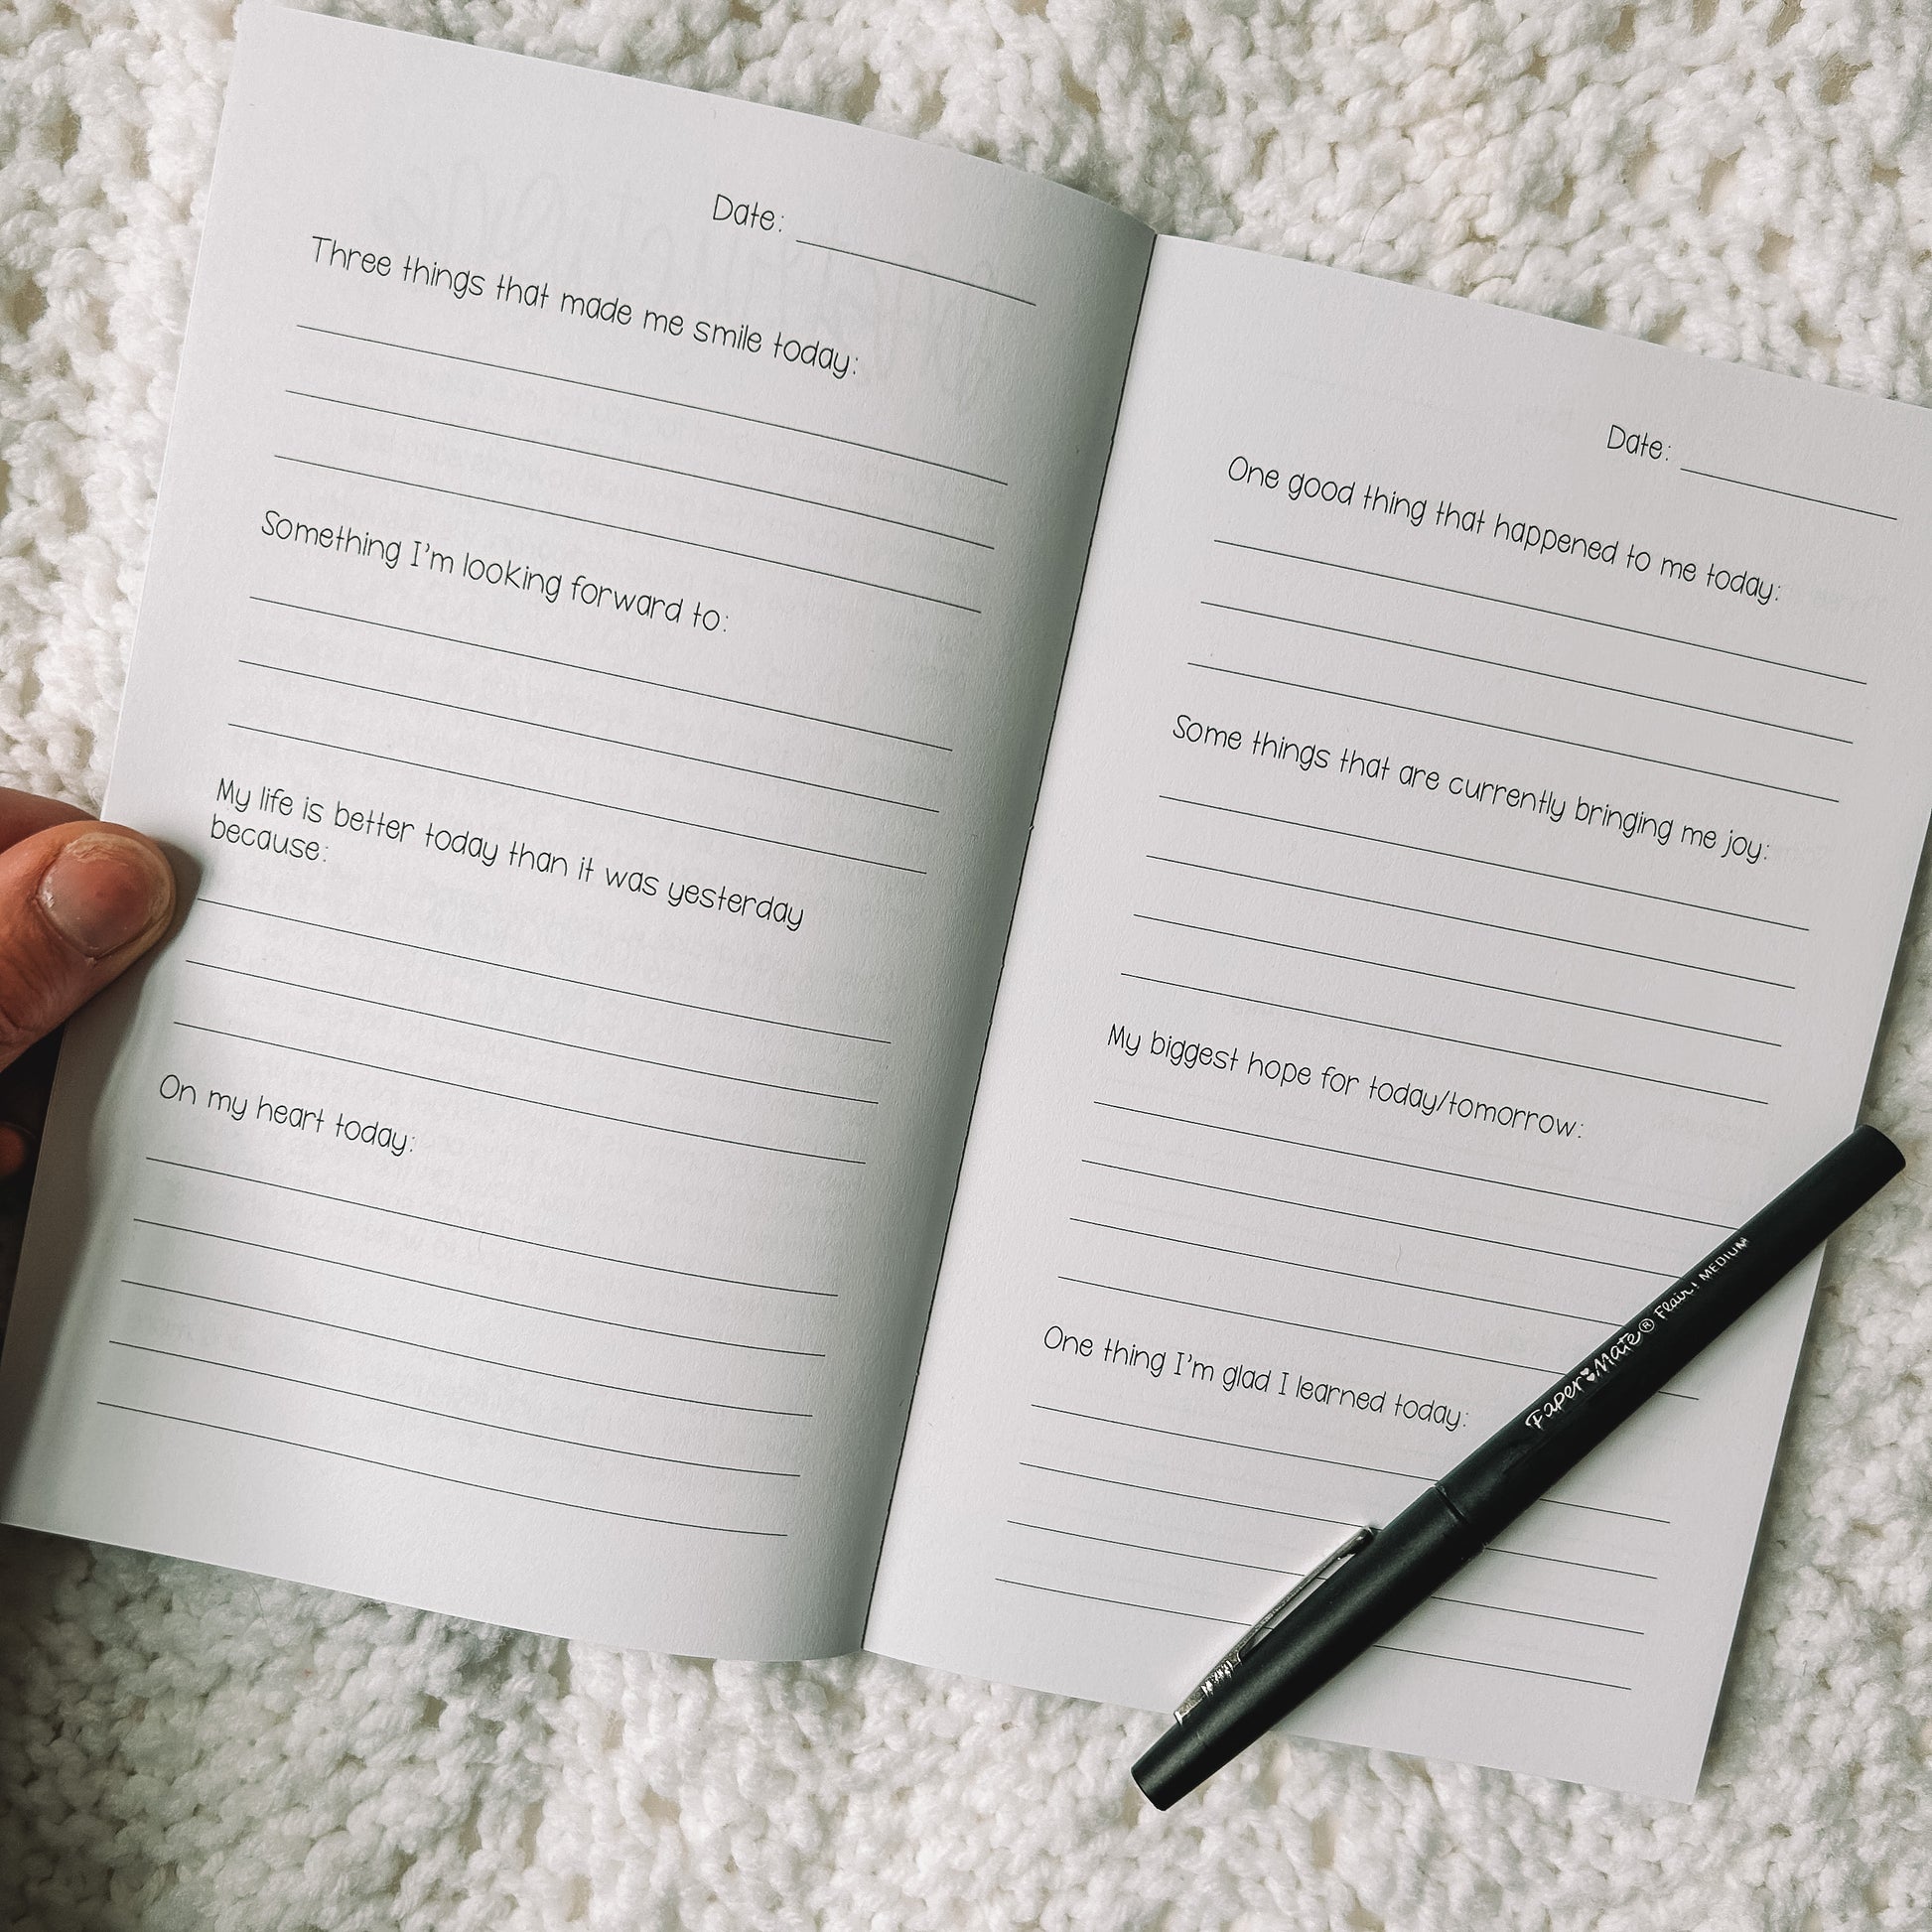 Date:
Three things that made me smile today:
Something I'm looking forward to:
My life is better today than it was yesterday
because:
On my heart today:
Date:
One good thing that happened to me today:
Some things that are currently bringing me joy:
My biggest hope for today/tomorrow:
One thing I'm glad I learned today:
Paper Mate® Flair! MEDIUM